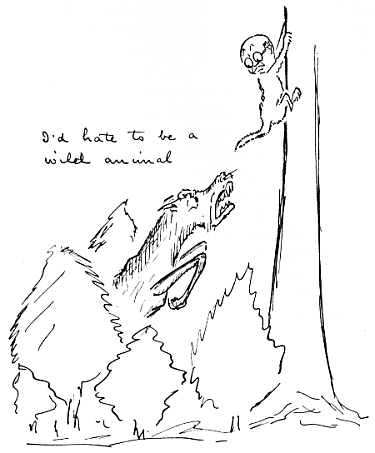 I'd hate to be a
wild animal